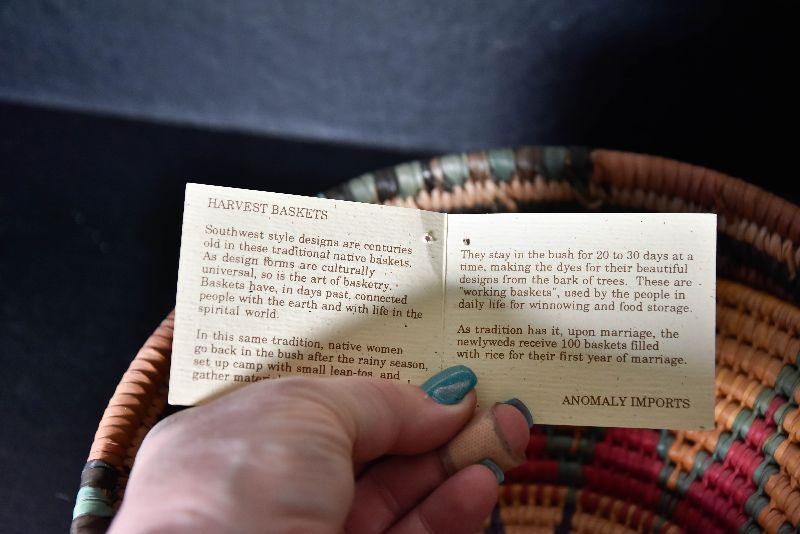 HARVEST BASKETS
Southwest style designs are centuries
old in these traditional native baskets.
As design forms are culturally
universal, so is the art of basketry.
Baskets have, in days past, connected
people with the earth and with life in the
spiritual world.
In this same tradition, native women
go back in the bush after the rainy season,
set up camp with small lean-tos, and
gather
They stay in the bush for 20 to 30 days at a
time, making the dyes for their beautiful
designs from the bark of trees. These are
"working baskets", used by the people in
daily life for winnowing and food storage.
As tradition has it, upon marriage, the
newlyweds receive 100 baskets filled
with rice for their first year of marriage.
ANOMALY IMPORTS